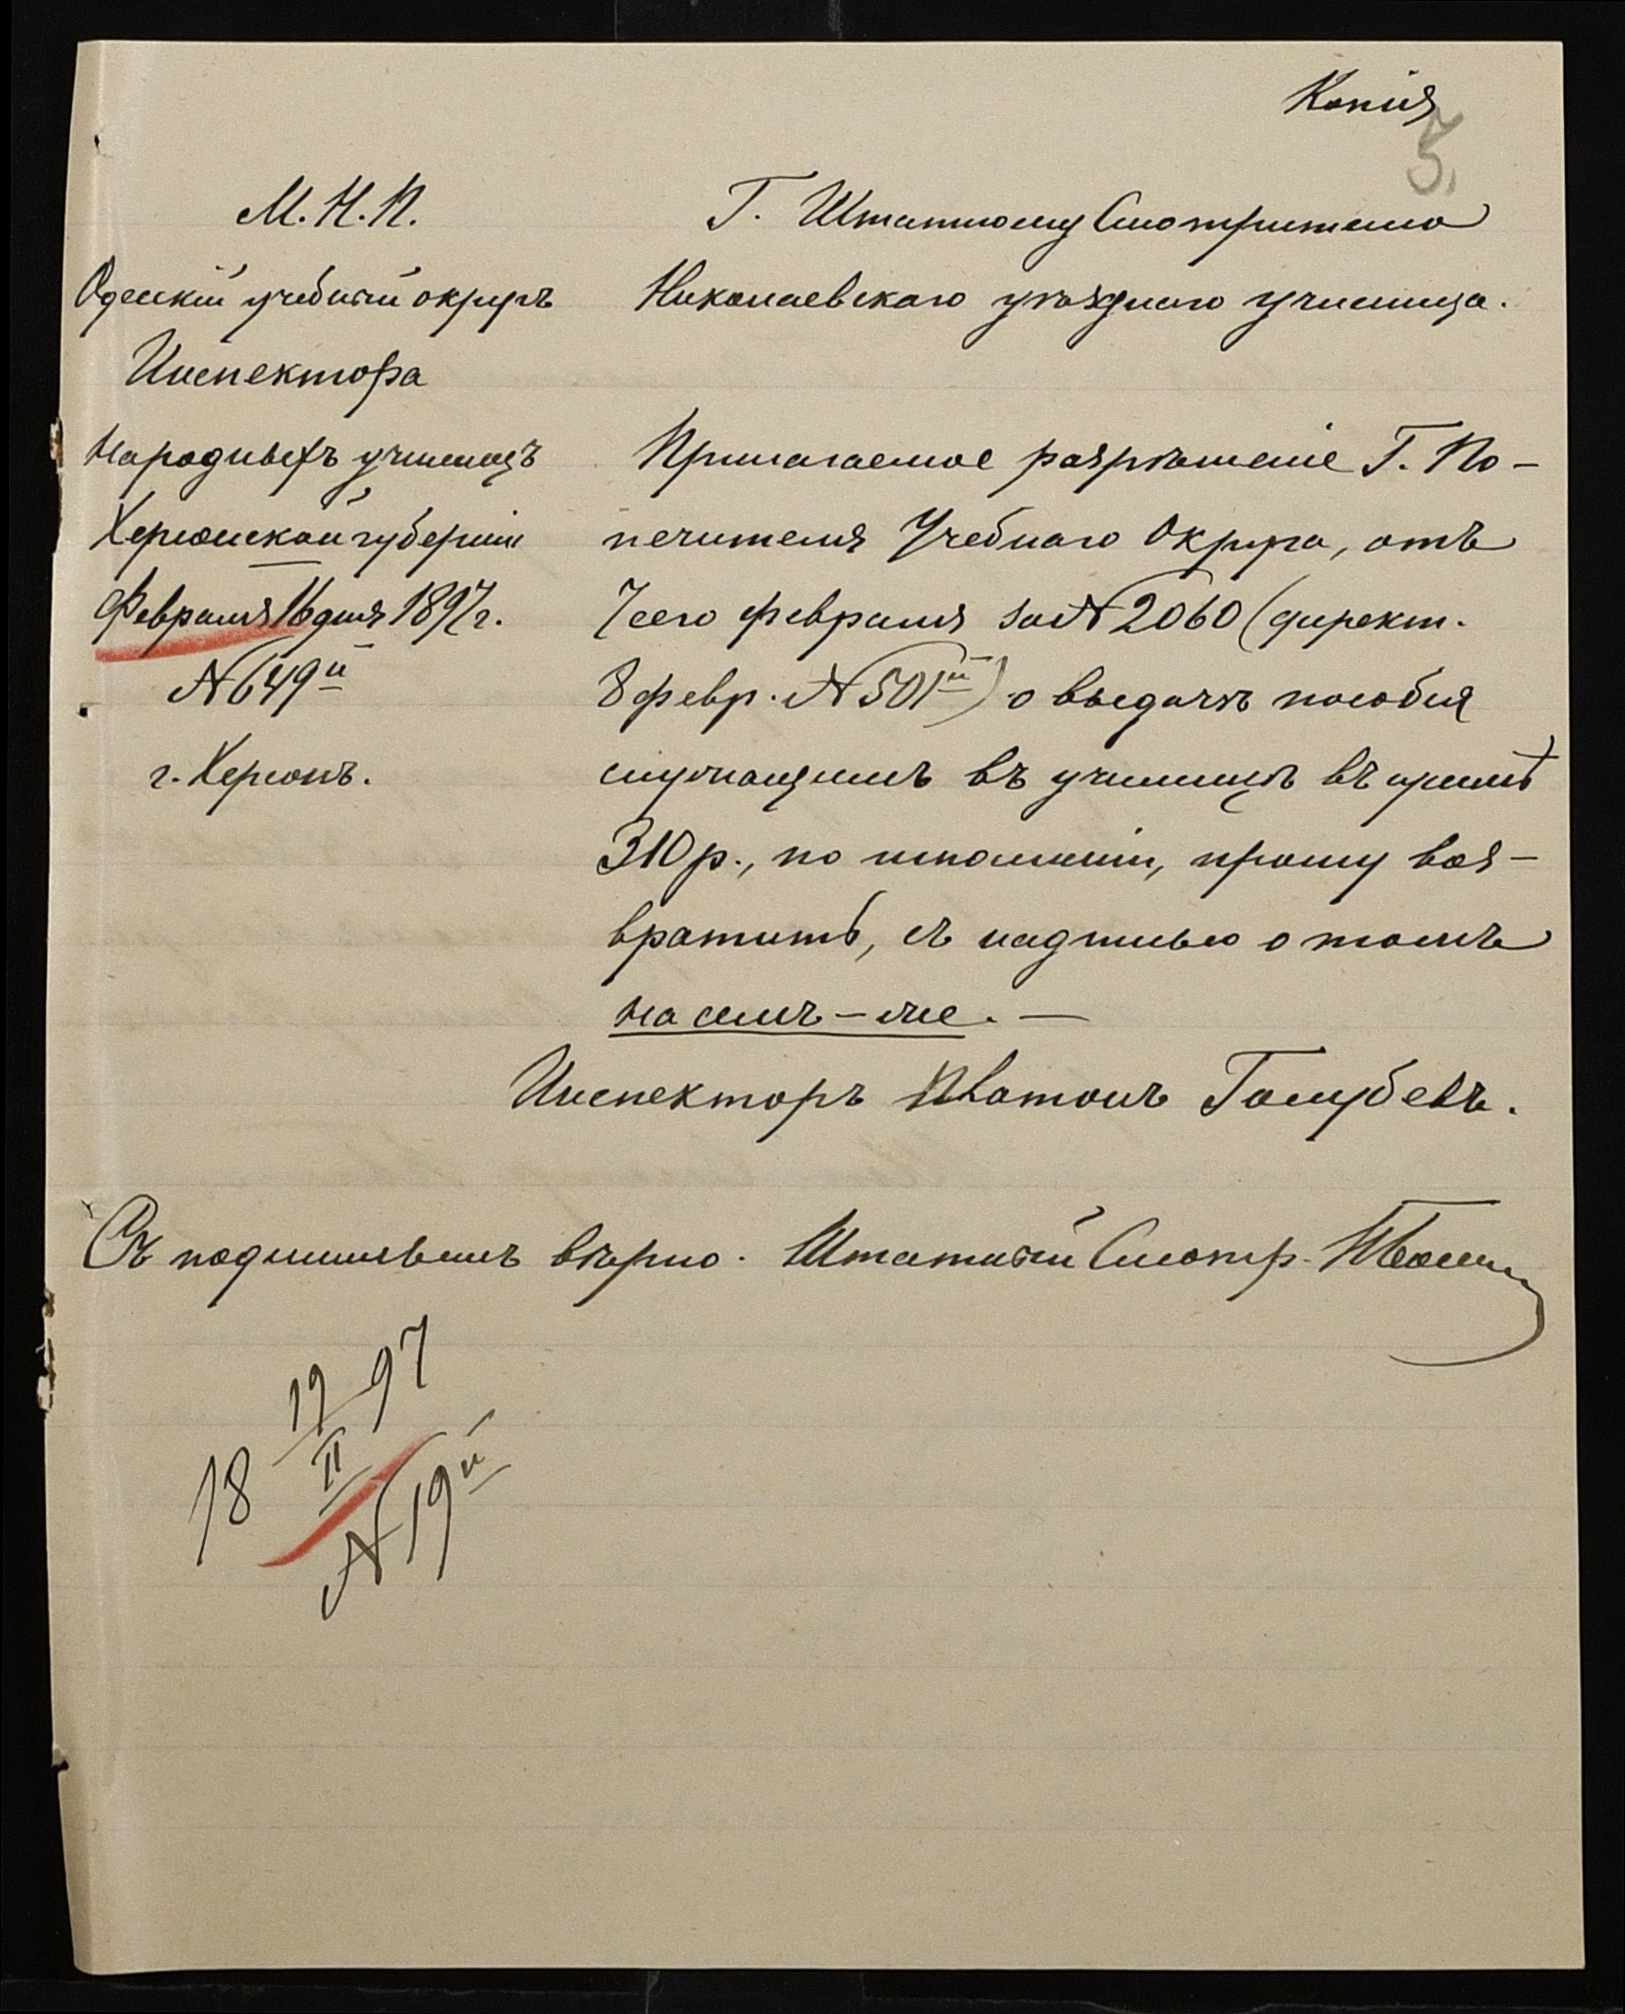 Копія
5.
М. Н. П.
Одескій учебный округъ
Инспектора
Народныхъ училищъ
Херсонской губерніи
Февраля 16 дня 1897 г.
№ 649й
г. Херсонъ.
Г. Штатному Смотрителю
Николаевскаго уѣзднаго училища.
Прилагаемое разрѣшеніе Г. По-
печителя Учебнаго Округа, отъ
7 сего февраля за № 2060 (директ.
8 февр. № 501й) о выдачѣ пособія
служащимъ въ училищѣ въ
310 р., по исполненіи, прошу воз-
вратить, съ надписью о томъ
на семъ-же. —
Инспекторъ Платонъ Голубевъ.
Съ подлиннымъ вѣрно. Штатный Смотр.
18 19/II 97
№ 19й